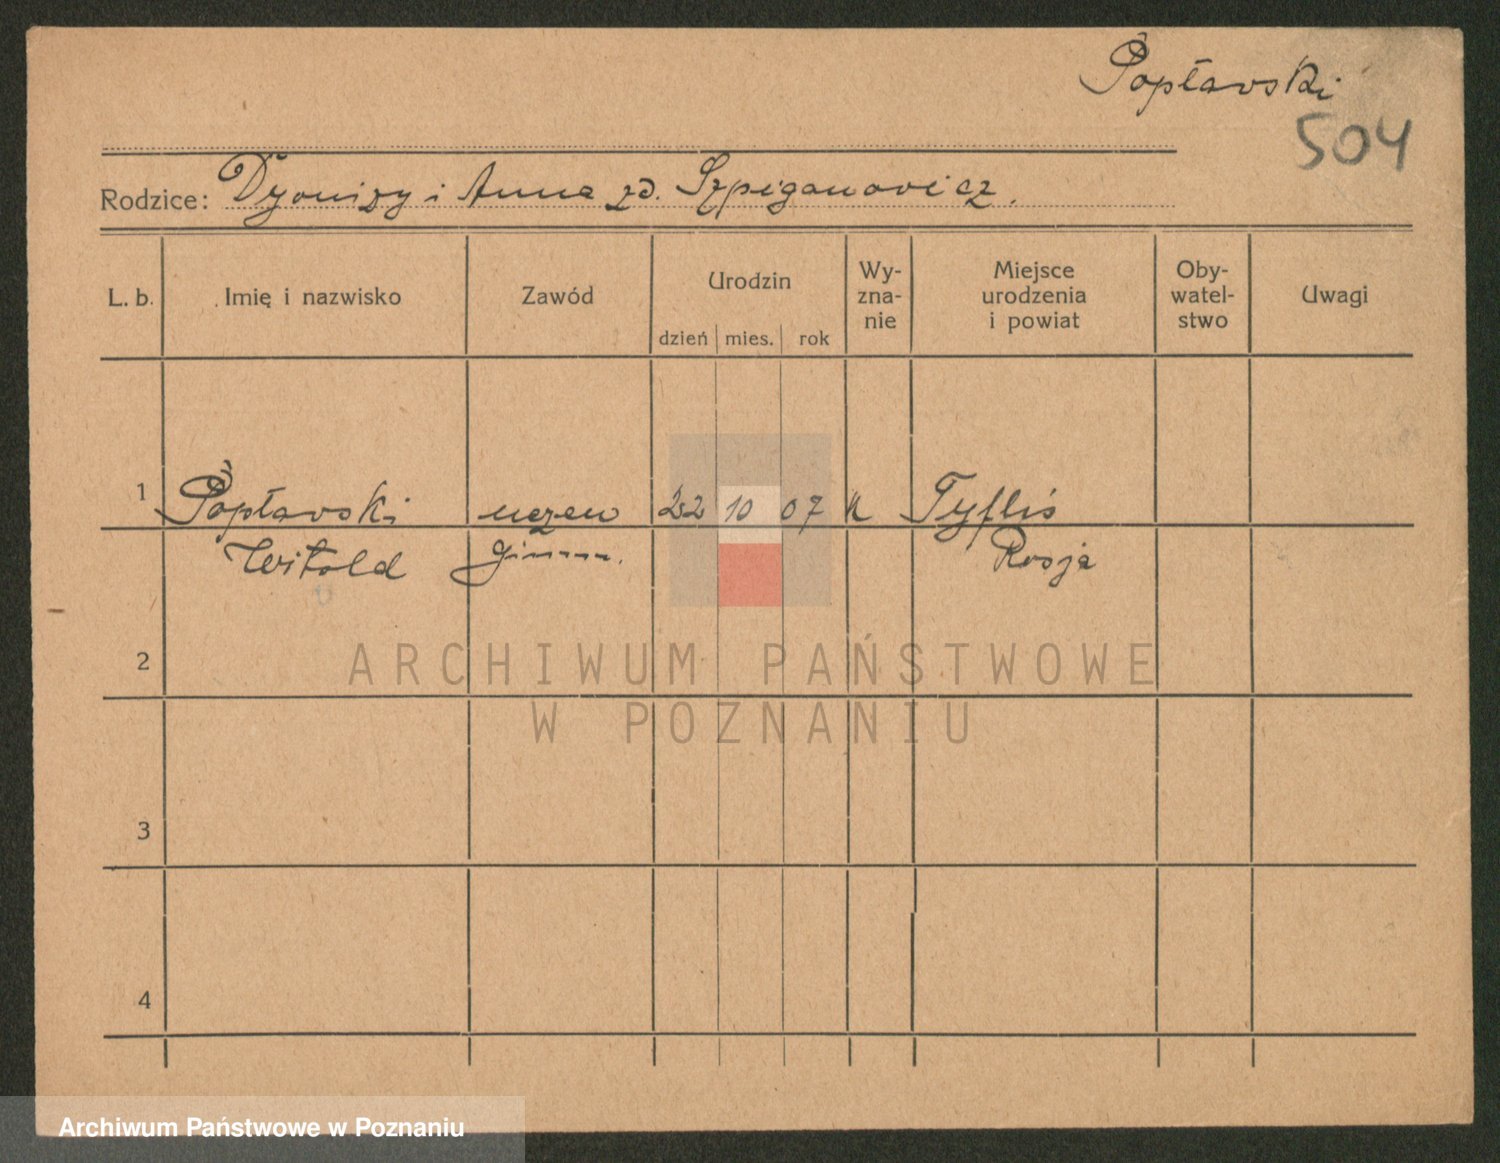 Popławski
504
Rodzice: Dyonizy i Anna zd. Szpiganowicz.
L. b.
Imię i nazwisko
Zawód
Urodzin
dzień mies. rok
Wy-
zna-
nie
Miejsce
urodzenia
i powiat
Oby-
watel-
stwo
Uwagi
1 Popławski uczeń 22 10 07 k Tyflis
Witold gimn. Rosja
2
3
4
ARCHIWUM PAŃSTWOWE
W POZNANIU
Archiwum Państwowe w Poznaniu